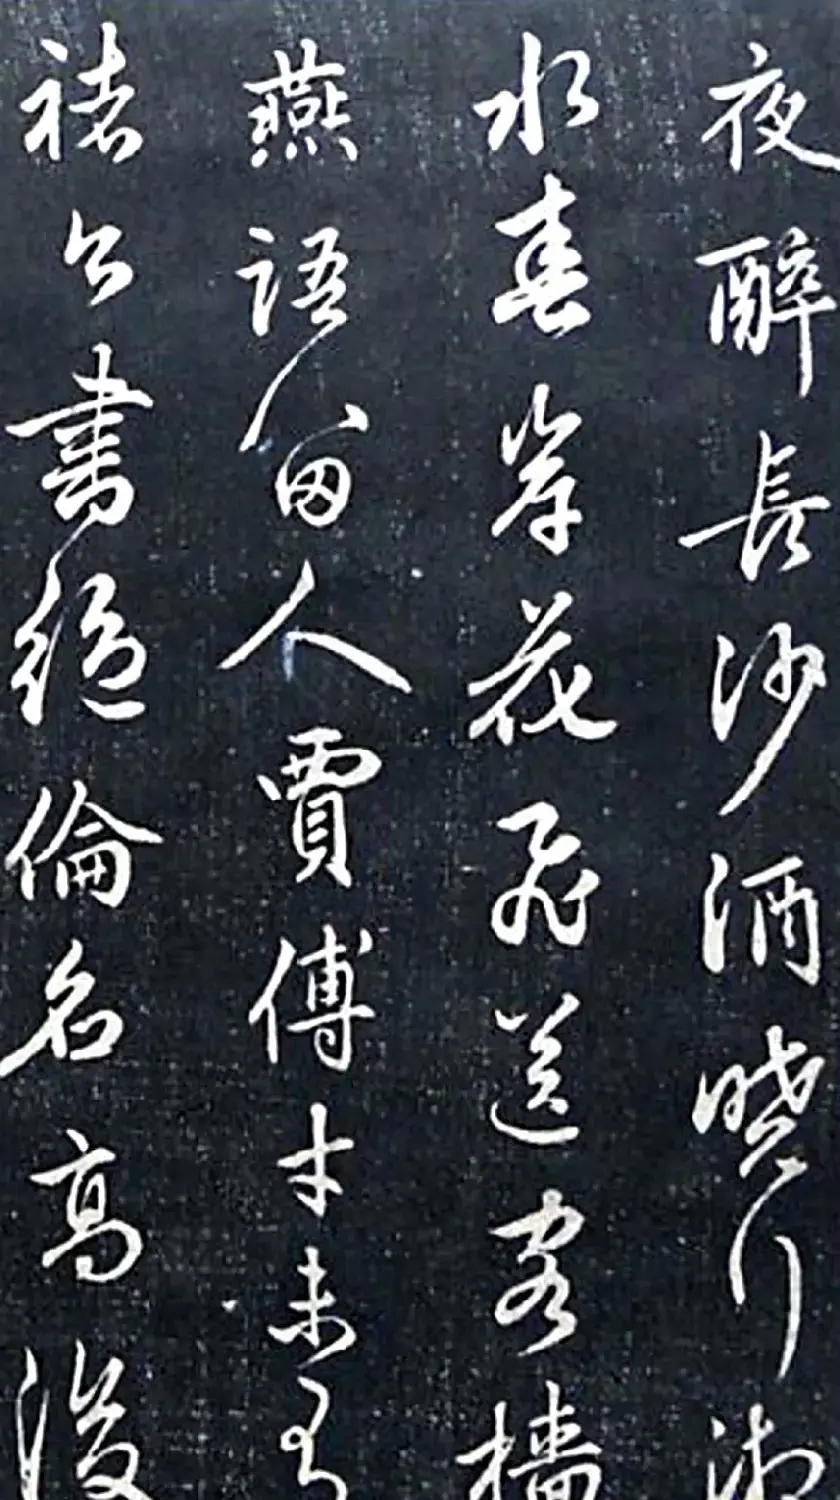 夜醉長沙酒曉行湘
水春岸花飛送客檣
燕語留人賈傅才未有
褚公書絕倫名高後